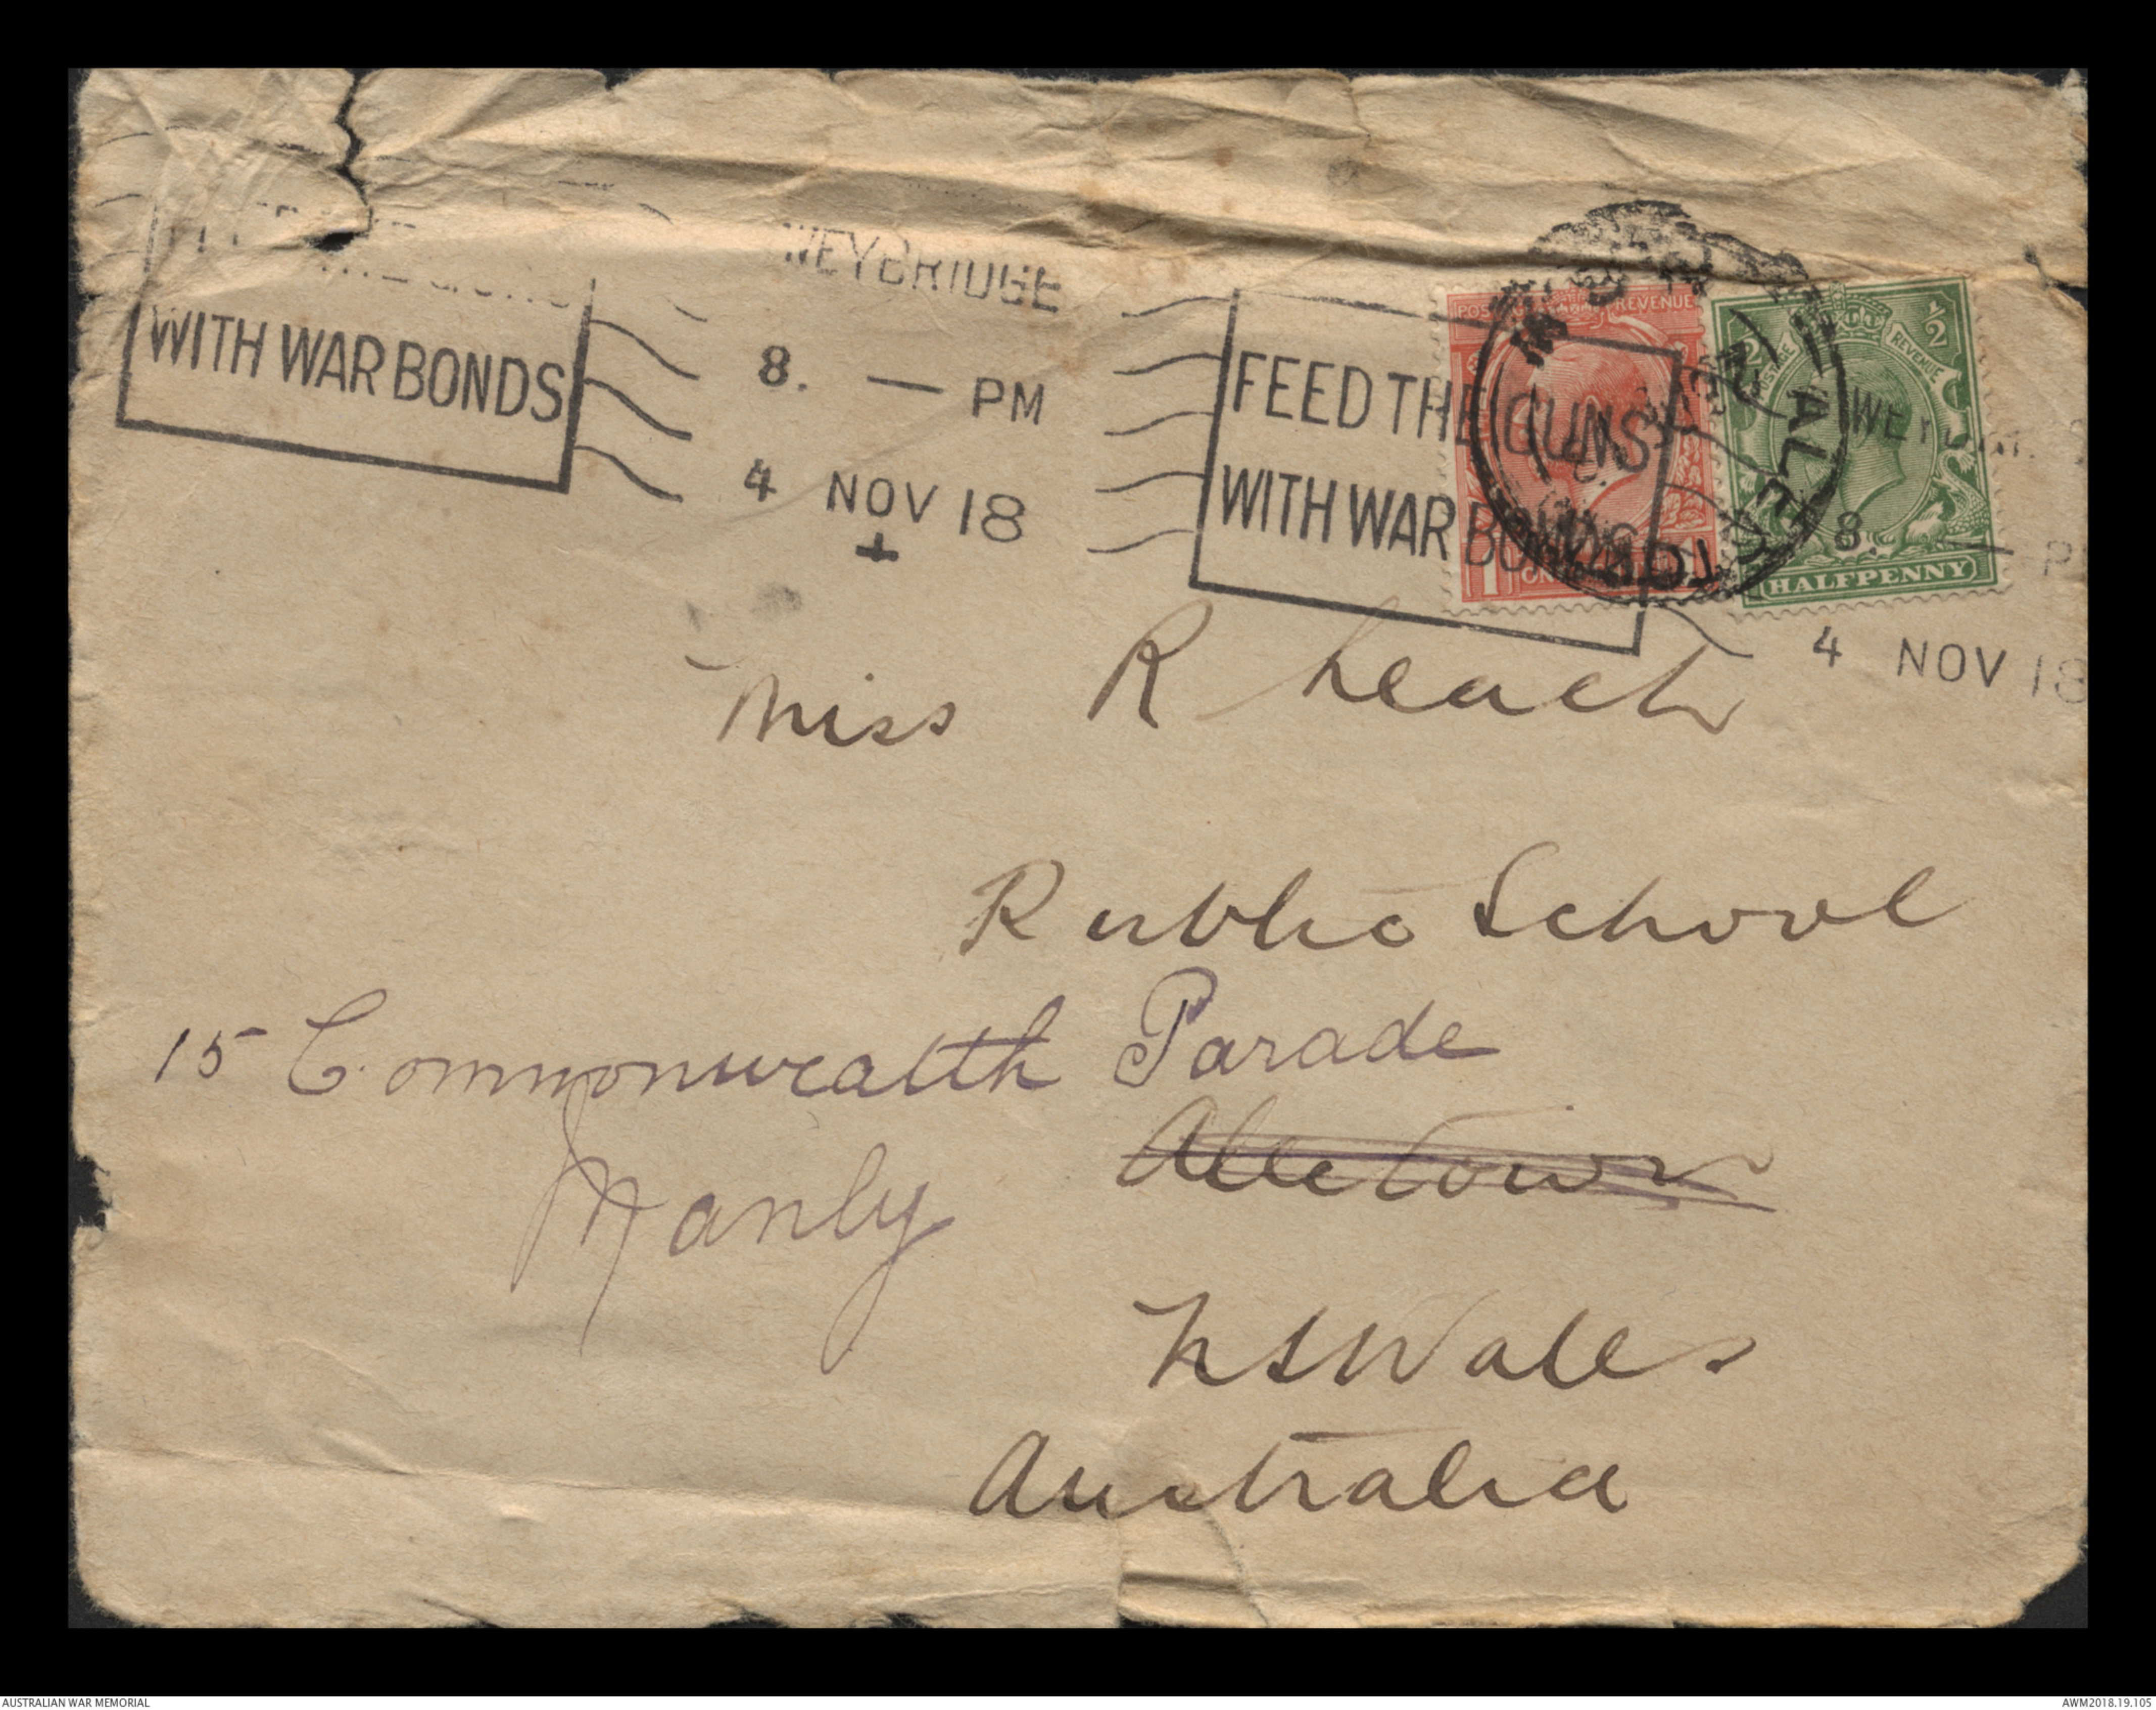 WEYBRIDGE
WITH WAR BONDS
8. — PM
4 NOV 18
FEED THE GUNS
WITH WAR BONDS
POSTAGE REVENUE
1
½
POSTAGE REVENUE
HALFPENNY
8. — P
4 NOV 18
Miss R Leach
Public School
15 Commonwealth Parade
Alletown
Manly
NSWales
Australia
AUSTRALIAN WAR MEMORIAL
AWM2018.19.105